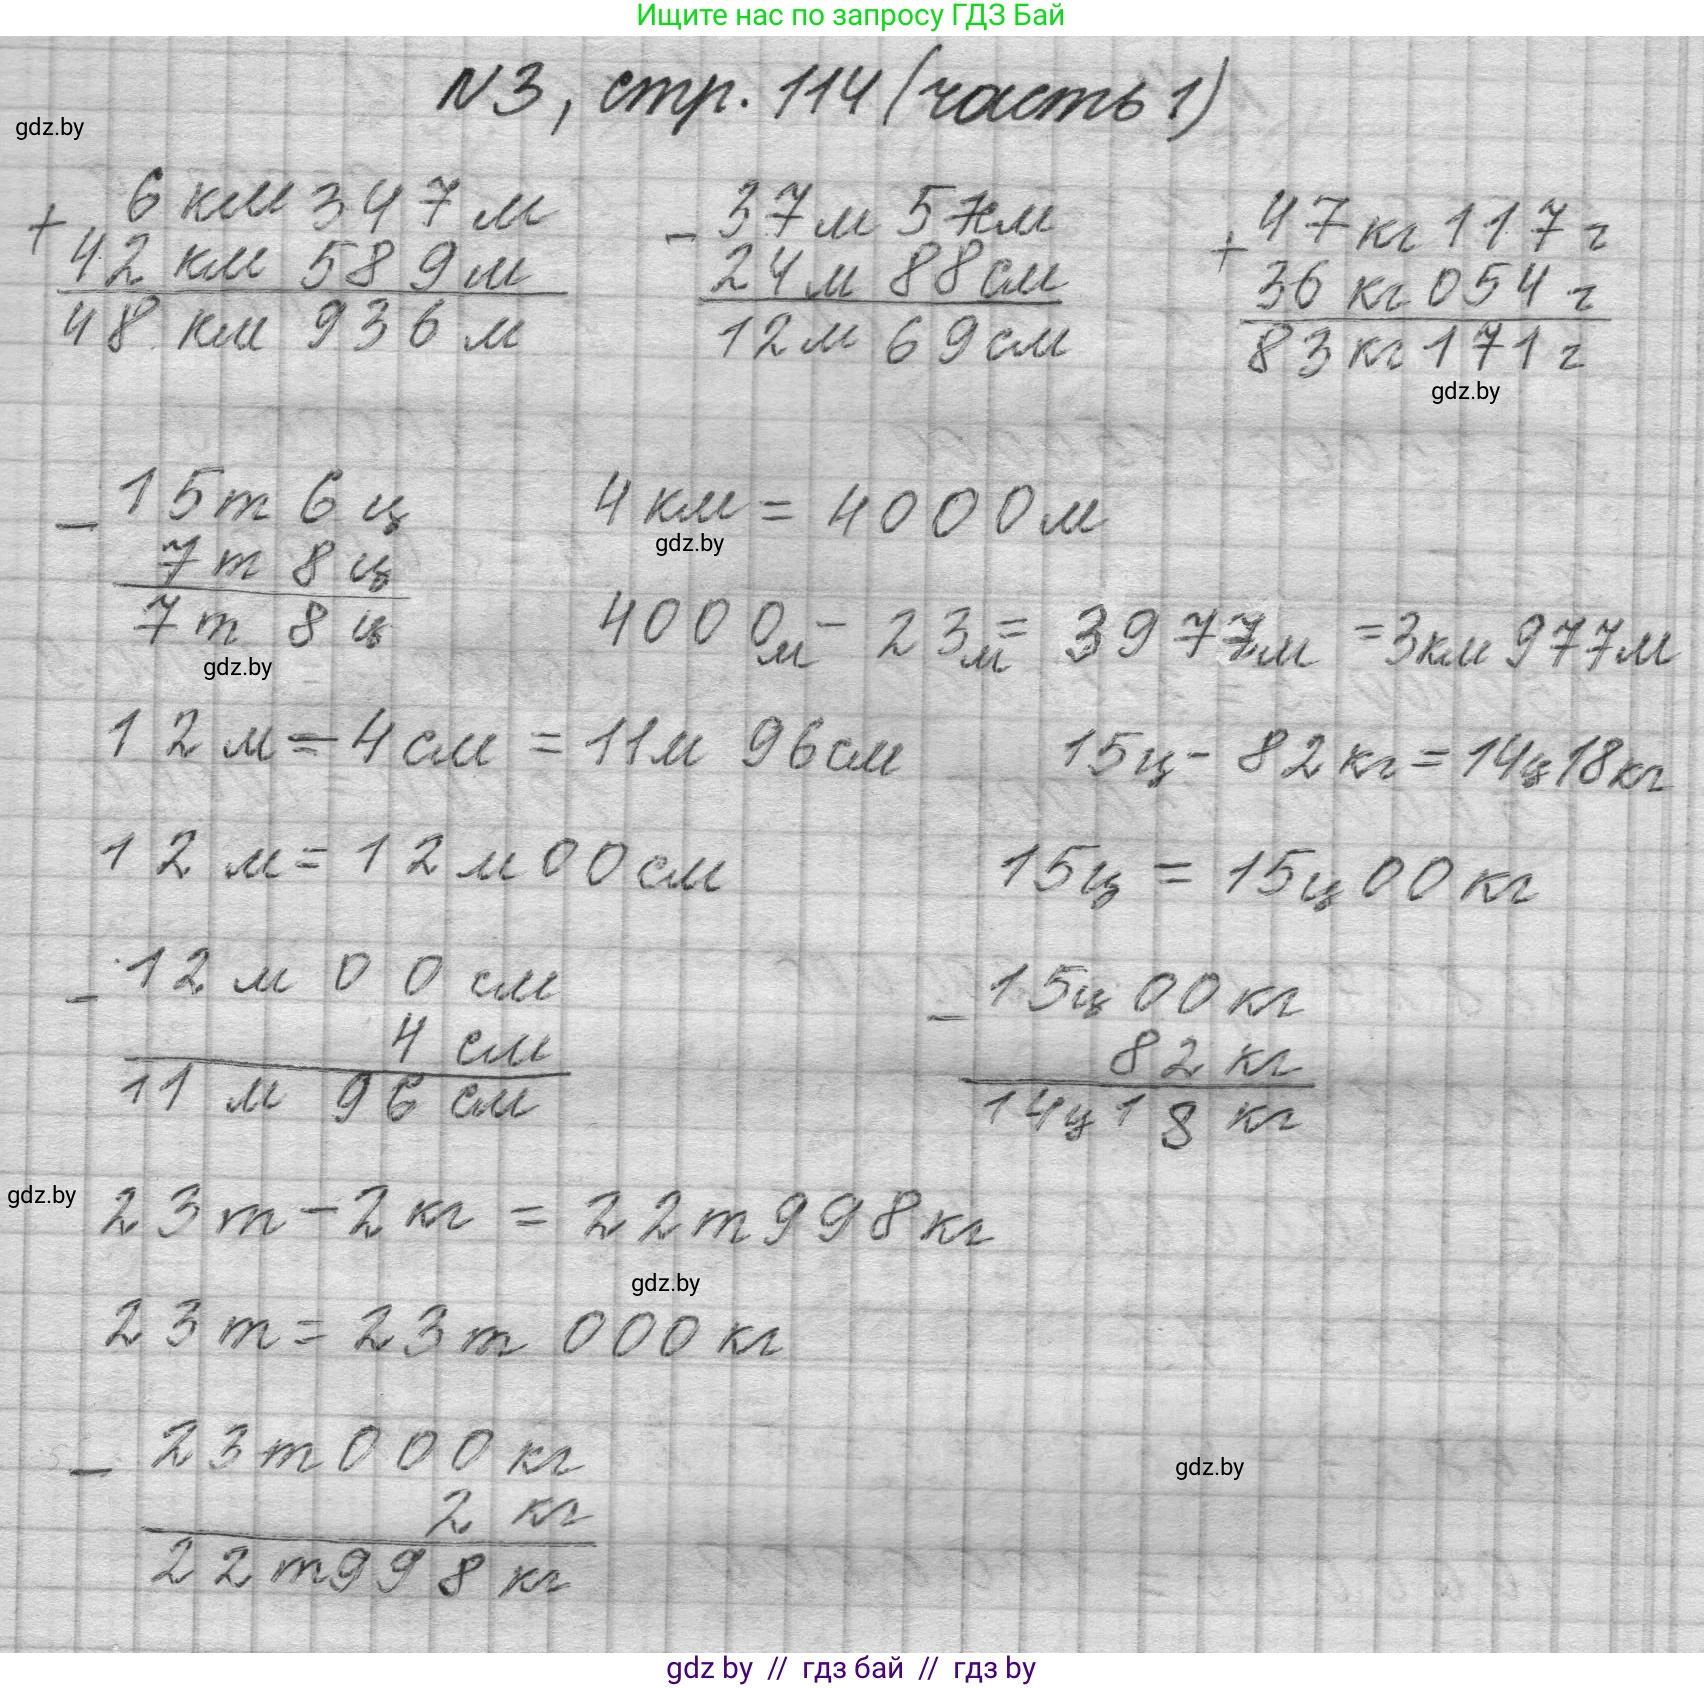 Ищите нас по запросу ГДЗ Бай
N3, стр. 114 (часть 1)
gdz.by
+ 6 км 347 м
42 км 589 м
48 км 936 м
- 37 м 57 см
24 м 88 см
12 м 69 см
+ 47 кг 117 г
36 кг 054 г
83 кг 171 г
gdz.by
- 15 т 6 ц
7 т 8 ц
7 т 8 ц
gdz.by
4 км = 4000 м
gdz.by
4000 м - 23 м = 3977 м = 3 км 977 м
12 м - 4 см = 11 м 96 см
15 ц - 82 кг = 14 ц 18 кг
12 м = 12 м 00 см
15 ц = 15 ц 00 кг
- 12 м 00 см
4 см
11 м 96 см
- 15 ц 00 кг
82 кг
14 ц 18 кг
gdz.by
23 т - 2 кг = 22 т 998 кг
gdz.by
23 т = 23 т 000 кг
- 23 т 000 кг
2 кг
22 т 998 кг
gdz.by
gdz by // гдз бай // гдз by